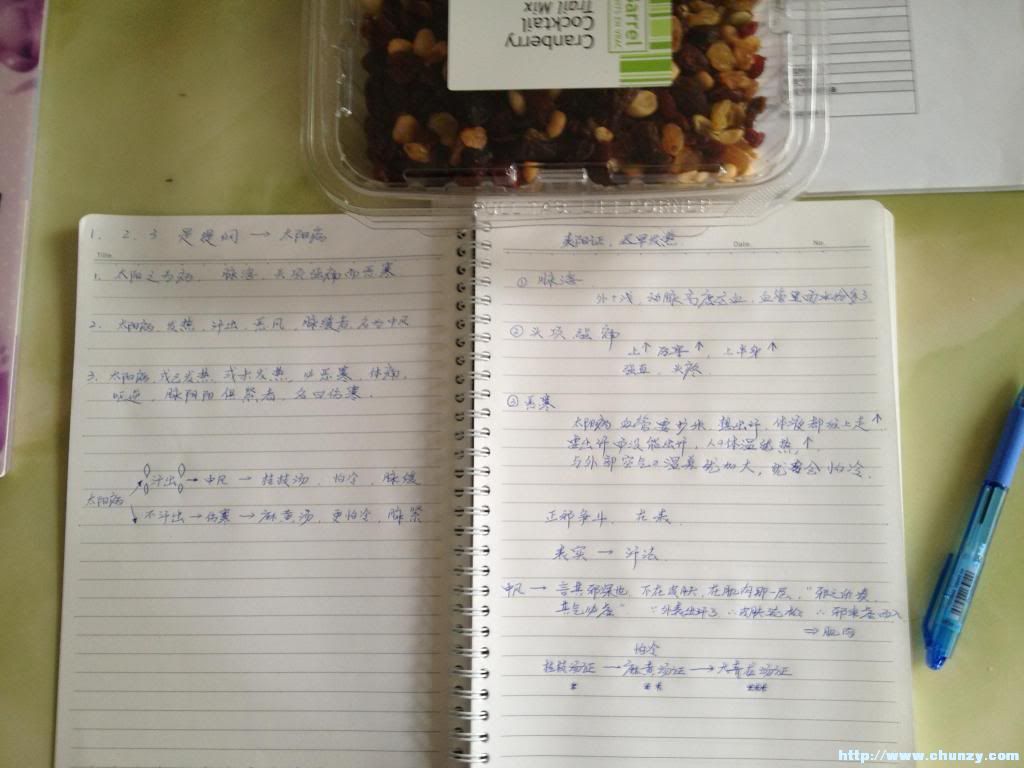 Cranberry
Cocktail
Trail Mix
barrel
1. 2. 3 是提纲 → 太阳病
Title
1. 太阳之为病, 脉浮, 头项强痛而恶寒
2. 太阳病, 发热, 汗出, 恶风, 脉缓者, 名为中风
3. 太阳病, 或已发热, 或未发热, 必恶寒, 体痛,
呕逆, 脉阴阳俱紧者, 名曰伤寒.
汗出 → 中风 → 桂枝汤, 怕冷, 脉缓
太阳病
不汗出 → 伤寒 → 麻黄汤, 更怕冷, 脉紧
表阳证, 发热
Date. No.
① 脉浮
外+浅, 动脉高度充血, 血管里面水份多了
② 头项强痛
上↑ 厉害↑, 上半身↑
强直, 头疼
③ 恶寒
太阳病 血管要扩张, 想出汗, 体液都往上走↑
要出汗而没能出汗, 人的体温就热↑,
与外部空气的温差就加大, 就会怕冷.
正邪争斗, 在表.
表实 → 汗法
中风 → 言其邪深也, 不在皮肤, 在肌肉那一层, "邪之所凑,
其气必虚" ∵外表出汗了 ∴皮肤 ∴邪乘虚而入
⇒ 肌肉
怕冷
桂枝汤证 → 麻黄汤证 → 大青龙汤证
* ** ***
http://www.chunzy.com